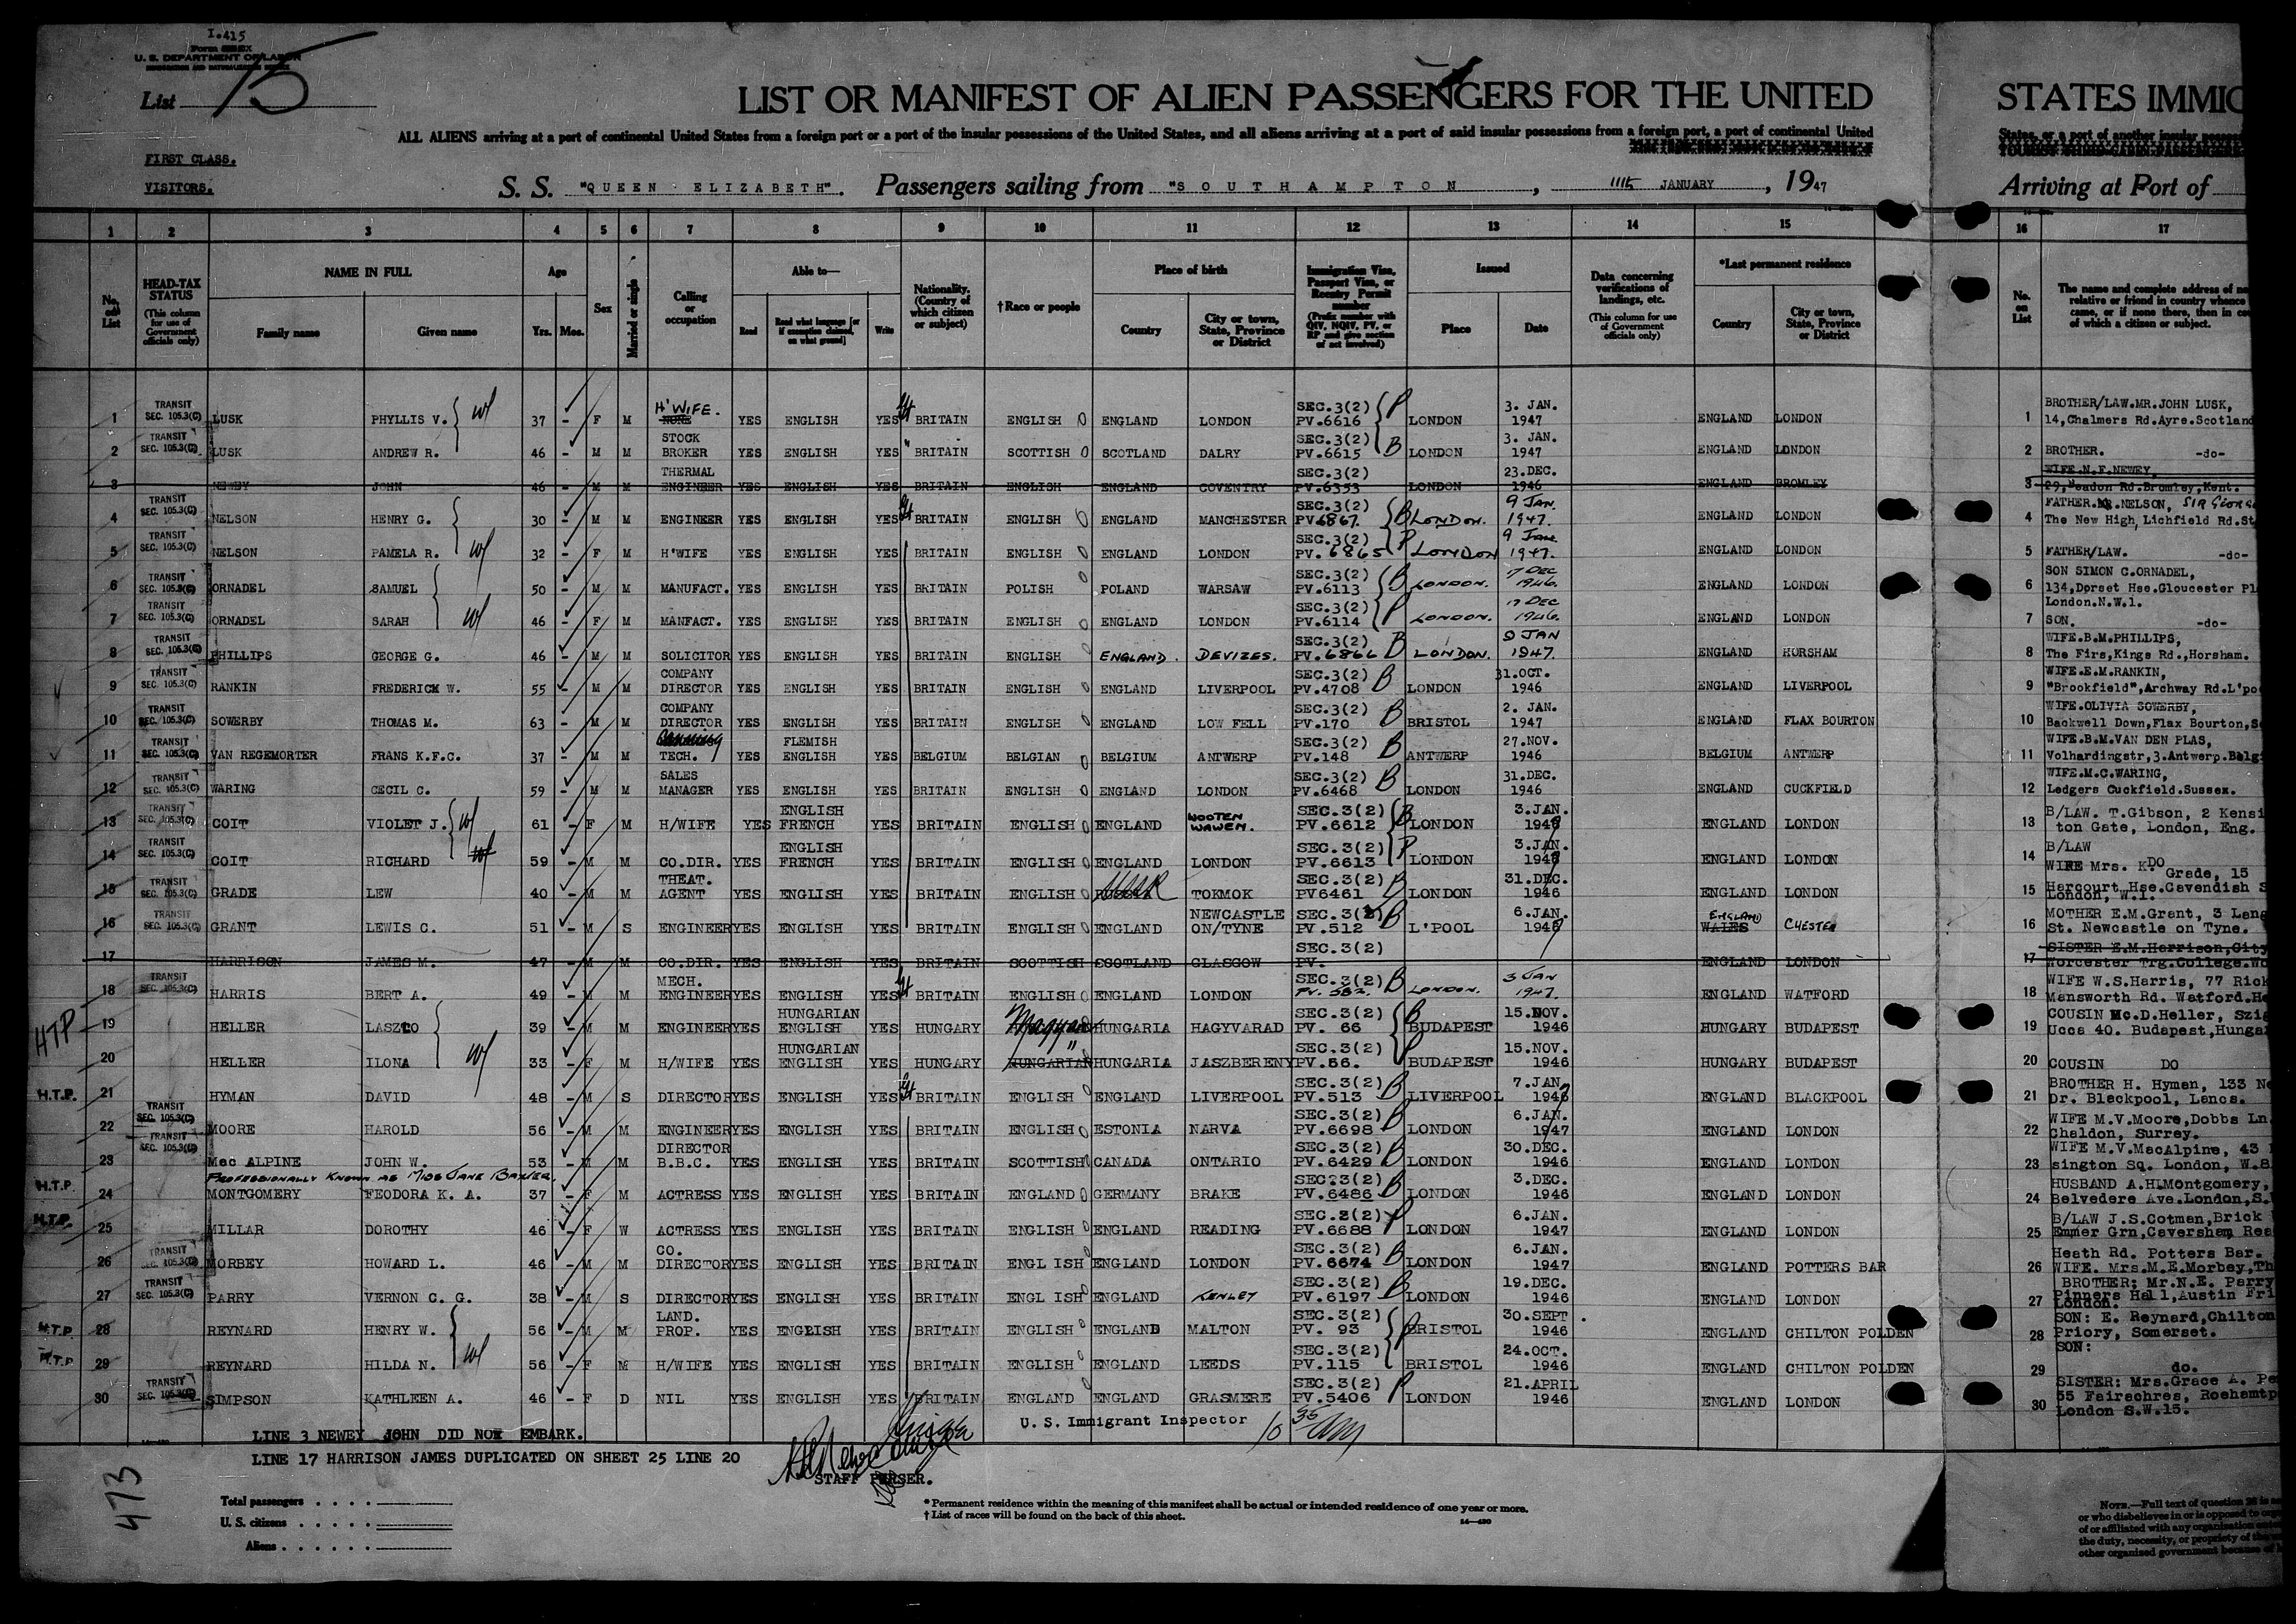 I.415
Form
U. S. DEPARTMENT OF LABOR
IMMIGRATION AND NATURALIZATION SERVICE
List 15
LIST OR MANIFEST OF ALIEN PASSENGERS FOR THE UNITED STATES IMMIG
ALL ALIENS arriving at a port of continental United States from a foreign port or a port of the insular possessions of the United States, and all aliens arriving at a port of said insular possessions from a foreign port, a port of continental United States, or a port of another insular
FIRST CLASS.
VISITORS.
S. S. "QUEEN ELIZABETH". Passengers sailing from "SOUTHAMPTON , JANUARY , 1947 Arriving at Port of
1 2 3 4 5 6 7 8 9 10 11 12 13 14 15 16 17
No. on List
HEAD-TAX STATUS (This column for use of Government officials only)
NAME IN FULL Family name Given name
Age Yrs. Mos.
Sex
Married or single
Calling or occupation
Able to— Read Read what language [or if exemption claimed, on what ground] Write
Nationality. (Country of which citizen or subject)
†Race or people
Place of birth Country City or town, State, Province or District
Immigration Visa, Passport Visa, or Reentry Permit number (Prefix number with QIV, NQIV, PV, or RP and give section of act involved)
Issued Place Date
Data concerning verifications of landings, etc. (This column for use of Government officials only)
*Last permanent residence Country City or town, State, Province or District
No. on List
The name and complete address of
relative or friend in country whence
came, or if none there, then in
of which a citizen or subject.
1 TRANSIT SEC. 105.3(C) LUSK PHYLLIS V. W/ 37 - F M H'WIFE. NONE YES ENGLISH YES BRITAIN ENGLISH ENGLAND LONDON SEC.3(2) PV.6616 P LONDON 3. JAN. 1947 ENGLAND LONDON 1 BROTHER/LAW.MR.JOHN LUSK, 14,Chalmers Rd.Ayre.Scotland
2 TRANSIT SEC. 105.3(C) LUSK ANDREW R. 46 - M M STOCK BROKER YES ENGLISH YES BRITAIN SCOTTISH SCOTLAND DALRY SEC.3(2) PV.6615 B LONDON 3. JAN. 1947 ENGLAND LONDON 2 BROTHER. -do-
3 NEWEY JOHN 46 - M M THERMAL ENGINEER YES ENGLISH YES BRITAIN ENGLISH ENGLAND COVENTRY SEC.3(2) PV.6353 LONDON 23.DEC. 1946 ENGLAND BROMLEY 3 WIFE.N.F.NEWEY. Rd.Bromley,Kent.
4 TRANSIT SEC. 105.3(C) NELSON HENRY G. 30 - M M ENGINEER YES ENGLISH YES BRITAIN ENGLISH ENGLAND MANCHESTER SEC.3(2) PV.6867. B LONDON. 9 JAN. 1947. ENGLAND LONDON 4 FATHER.MR.NELSON, SIR GEORGE The New High, Lichfield Rd.St
5 TRANSIT SEC. 105.3(C) NELSON PAMELA R. W/ 32 - F M H'WIFE YES ENGLISH YES BRITAIN ENGLISH ENGLAND LONDON SEC.3(2) PV. 6865 P LONDON 9 Jan. 1947. ENGLAND LONDON 5 FATHER/LAW. -do-
6 TRANSIT SEC. 105.3(C) ORNADEL SAMUEL 50 - M M MANUFACT. YES ENGLISH YES BRITAIN POLISH POLAND WARSAW SEC.3(2) PV.6113 B LONDON. 17 DEC 1946. ENGLAND LONDON 6 SON SIMON C.ORNADEL, 134,Dorset Hse.Gloucester Pl London.N.W.1.
7 TRANSIT SEC. 105.3(C) ORNADEL SARAH W/ 46 - F M MANFACT. YES ENGLISH YES BRITAIN ENGLISH ENGLAND LONDON SEC.3(2) PV.6114 P LONDON. 17 DEC 1946. ENGLAND LONDON 7 SON. -do-
8 TRANSIT SEC. 105.3(C) PHILLIPS GEORGE G. 46 - M M SOLICITOR YES ENGLISH YES BRITAIN ENGLISH ENGLAND. DEVIZES. SEC.3(2) PV.6866 B LONDON. 9 JAN 1947. ENGLAND HORSHAM 8 WIFE.B.M.PHILLIPS, The Firs,Kings Rd.,Horsham.
9 TRANSIT SEC. 105.3(C) RANKIN FREDERICK W. 55 - M M COMPANY DIRECTOR YES ENGLISH YES BRITAIN ENGLISH ENGLAND LIVERPOOL SEC.3(2) PV.4708 B LONDON 31.OCT. 1946 ENGLAND LIVERPOOL 9 WIFE.E.M.RANKIN, "Brookfield",Archway Rd.L'po
10 TRANSIT SEC. 105.3(C) SOWERBY THOMAS M. 63 - M M COMPANY DIRECTOR YES ENGLISH YES BRITAIN ENGLISH ENGLAND LOW FELL SEC.3(2) PV.170 B BRISTOL 2. JAN. 1947 ENGLAND FLAX BOURTON 10 WIFE.OLIVIA SOWERBY, Backwell Down,Flax Bourton,S
11 TRANSIT SEC. 105.3(C) VAN REGEMORTER FRANS K.F.C. 37 - M M TECH. YES FLEMISH ENGLISH YES BELGIUM BELGIAN BELGIUM ANTWERP SEC.3(2) PV.148 B ANTWERP 27.NOV. 1946 BELGIUM ANTWERP 11 WIFE.B.M.VAN DEN PLAS, Volhardingstr,3.Antwerp.Belgi
12 TRANSIT SEC. 105.3(C) WARING CECIL C. 59 - M M SALES MANAGER YES ENGLISH YES BRITAIN ENGLISH ENGLAND LONDON SEC.3(2) PV.6468 B LONDON 31.DEC. 1946 ENGLAND CUCKFIELD 12 WIFE.M.C.WARING, Ledgers Cuckfield.Sussex.
13 TRANSIT SEC. 105.3(C) COIT VIOLET J. W/ 61 - F M H/WIFE YES ENGLISH FRENCH YES BRITAIN ENGLISH ENGLAND WOOTEN WAWEN. SEC.3(2) PV.6612 B LONDON 3.JAN. 1947 ENGLAND LONDON 13 B/LAW. T.Gibson, 2 Kensi ton Gate, London, Eng.
14 TRANSIT SEC. 105.3(C) COIT RICHARD 59 - M M CO.DIR. YES ENGLISH FRENCH YES BRITAIN ENGLISH ENGLAND LONDON SEC.3(2) PV.6613 P LONDON 3.JAN. 1947 ENGLAND LONDON 14 B/LAW DO
15 TRANSIT SEC. 105.3(C) GRADE LEW 40 - M M THEAT. AGENT YES ENGLISH YES BRITAIN ENGLISH RUSSIA TOKMOK SEC.3(2) PV6461 B LONDON 31.DEC. 1946 ENGLAND LONDON 15 WIFE Mrs. K. Grade, 15 Harcourt Hse.Cavendish S London, W.1.
16 TRANSIT SEC. 105.3(C) GRANT LEWIS C. 51 - M S ENGINEER YES ENGLISH YES BRITAIN ENGLISH ENGLAND NEWCASTLE ON/TYNE SEC.3(2) PV.512 B L'POOL 6.JAN. 1947 ENGLAND WALES CHESTER 16 MOTHER E.M.Grant, 3 Lang St. Newcastle on Tyne.
17 HARRISON JAMES M. 47 - M M CO.DIR. YES ENGLISH YES BRITAIN SCOTTISH SCOTLAND GLASGOW SEC.3(2) PV. ENGLAND LONDON 17 SISTER E.M.Harrison,City Worcester Trg.College.Wo
18 TRANSIT SEC. 105.3(C) HARRIS BERT A. 49 - M M MECH. ENGINEER YES ENGLISH YES BRITAIN ENGLISH ENGLAND LONDON SEC.3(2) PV. 582. B LONDON. 3 JAN 1947. ENGLAND WATFORD 18 WIFE W.S.Harris, 77 Rick Mansworth Rd. Watford.He
HTP 19 HELLER LASZLO 39 - M M ENGINEER YES HUNGARIAN ENGLISH YES HUNGARY Magyar HUNGARIA HAGYVARAD SEC.3(2) PV. 66 B BUDAPEST 15.NOV. 1946 HUNGARY BUDAPEST 19 COUSIN Mc.D.Heller, Szig Ucca 40. Budapest,Hungar
20 HELLER ILONA W/ 33 - F M H/WIFE YES HUNGARIAN ENGLISH YES HUNGARY " HUNGARIAN HUNGARIA JASZBERENY SEC.3(2) PV.56. P BUDAPEST 15.NOV. 1946 HUNGARY BUDAPEST 20 COUSIN DO
H.T.P. 21 HYMAN DAVID 48 - M S DIRECTOR YES ENGLISH YES BRITAIN ENGLISH ENGLAND LIVERPOOL SEC.3(2) PV.513 B LIVERPOOL 7.JAN 1947 ENGLAND BLACKPOOL 21 BROTHER H. Hyman, 133 Ne Dr. Blackpool, Lancs.
22 TRANSIT SEC. 105.3(C) MOORE HAROLD 56 - M M ENGINEER YES ENGLISH YES BRITAIN ENGLISH ESTONIA NARVA SEC.3(2) PV.6698 B LONDON 6.JAN. 1947 ENGLAND LONDON 22 WIFE M.V.Moore,Dobbs Ln. Chaldon, Surrey.
23 TRANSIT SEC. 105.3(C) Mac ALPINE JOHN W. 53 - M M DIRECTOR B.B.C. YES ENGLISH YES BRITAIN SCOTTISH CANADA ONTARIO SEC.3(2) PV.6429 B LONDON 30.DEC. 1946 ENGLAND LONDON 23 WIFE M.V.MacAlpine, 43 sington Sq. London, W.8
PROFESSIONALLY KNOWN AS MISS JANE BAXTER.
H.T.P 24 MONTGOMERY FEODORA K. A. 37 - F M ACTRESS YES ENGLISH YES BRITAIN ENGLAND GERMANY BRAKE SEC.3(2) PV.6486 B LONDON 3.DEC. 1946 ENGLAND LONDON 24 HUSBAND A.H.Montgomery, Belvedere Ave.London,S.
H.T.P. 25 MILLAR DOROTHY 46 - F W ACTRESS YES ENGLISH YES BRITAIN ENGLISH ENGLAND READING SEC.2(2) PV.6688 P LONDON 6.JAN. 1947 ENGLAND LONDON 25 B/LAW J.S.Cotman,Brick Emmer Grn,Caversham Rea
26 TRANSIT SEC. 105.3(C) MORBEY HOWARD L. 46 - M M CO. DIRECTOR YES ENGLISH YES BRITAIN ENGL ISH ENGLAND LONDON SEC.3(2) PV.6674 B LONDON 6.JAN. 1947 ENGLAND POTTERS BAR 26 Heath Rd. Potters Bar. WIFE. Mrs.M.E.Morbey,Th
27 TRANSIT SEC. 105.3(C) PARRY VERNON C. G. 38 - M S DIRECTOR YES ENGLISH YES BRITAIN ENGL ISH ENGLAND KENLEY SEC.3(2) PV.6197 B LONDON 19.DEC. 1946 ENGLAND LONDON 27 BROTHER: Mr.N.E. Parry Pinners Hall,Austin Fri London.
H.T.P 28 REYNARD HENRY W. 56 - M M LAND. PROP. YES ENGLISH YES BRITAIN ENGLISH ENGLAND MALTON SEC.3(2) PV. 93 BRISTOL 30.SEPT. 1946 ENGLAND CHILTON POLDEN 28 SON: E. Reynard,Chilton Priory, Somerset.
H.T.P 29 REYNARD HILDA N. W/ 56 - F M H/WIFE YES ENGLISH YES BRITAIN ENGLISH ENGLAND LEEDS SEC.3(2) PV.115 BRISTOL 24.OCT. 1946 ENGLAND CHILTON POLDEN 29 SON: do.
30 TRANSIT SEC. 105.3(C) SIMPSON KATHLEEN A. 46 - F D NIL YES ENGLISH YES BRITAIN ENGLAND ENGLAND GRASMERE SEC.3(2) PV.5406 P LONDON 21.APRIL 1946 ENGLAND LONDON 30 SISTER: Mrs.Grace A. Pe 55 Fairachres, Roehampt London S.W.15.
U. S. Immigrant Inspector
LINE 3 NEWEY JOHN DID NOT EMBARK.
LINE 17 HARRISON JAMES DUPLICATED ON SHEET 25 LINE 20
STAFF PURSER.
473
Total passengers . . . .
U. S. citizens . . . . .
Aliens . . . . . .
* Permanent residence within the meaning of this manifest shall be actual or intended residence of one year or more.
† List of races will be found on the back of this sheet.
NOTE.—Full text of question 26 is
or who disbelieves in or is opposed to
of or affiliated with any organization
the duty, necessity, or propriety of the
other organized government because of